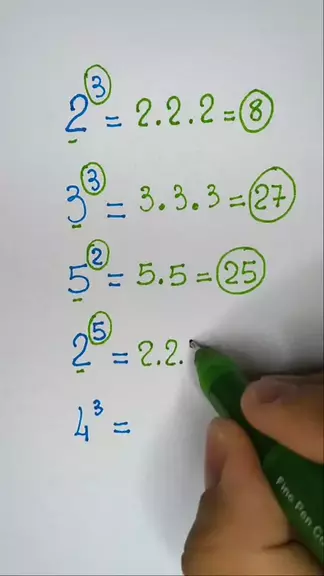 2³ = 2.2.2 = 8
3³ = 3.3.3 = 27
5² = 5.5 = 25
2⁵ = 2.2.
4³ =
Fine Pen